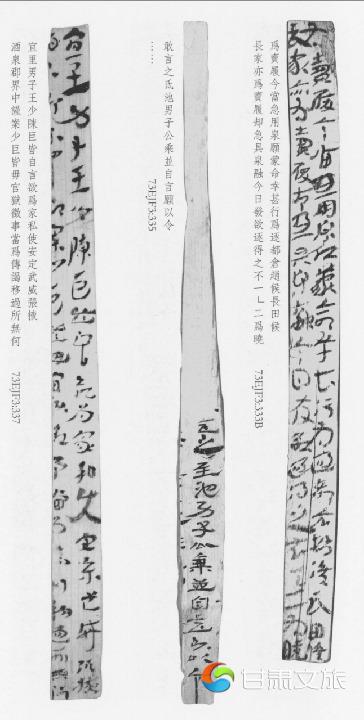 爲賣履今當急用泉願蒙命幸甚行爲逐都倉趙候長田候
長家亦爲賣履却急具泉融今日發欲逐得之不一乚二爲曉
73EJF3:333B
敢言之氐池男子公乘並自言願以令
……
73EJF3:335
宜里男子王少陳巨皆自言欲爲家私使安定武威張掖
酒泉郡界中謹案少巨皆毋官獄徵事當爲傳謁移過所無何
73EJF3:337
甘肃文旅